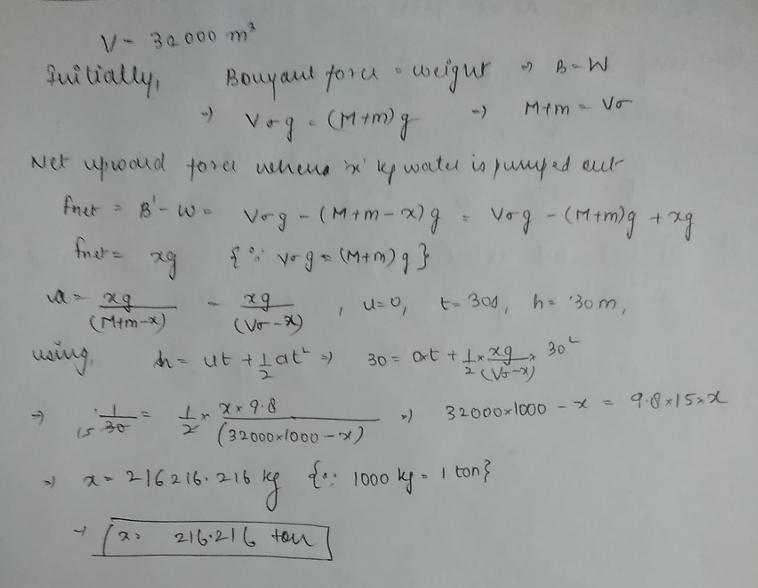 V = 32000 m³
Initially, Bouyant force = weight ⇒ B = W
⇒ Vσg = (M+m)g ⇒ M+m = Vσ
Net upward force when 'x' kg water is pumped out
Fnet = B' - W = Vσg - (M+m-x)g = Vσg - (M+m)g + xg
fnet = xg {∵ Vσg = (M+m)g}
a = xg/(M+m-x) = xg/(Vσ-x) , u=0, t=30s, h=30m,
using, h = ut + 1/2 at² ⇒ 30 = 0×t + 1/2 × xg/(Vσ-x) × 30²
⇒ 1/30 15 = 1/2 × x×9.8/(32000×1000-x) ⇒ 32000×1000 - x = 9.8×15×x
⇒ x = 216216.216 kg {∵ 1000 kg = 1 ton}
⇒ x = 216.216 ton